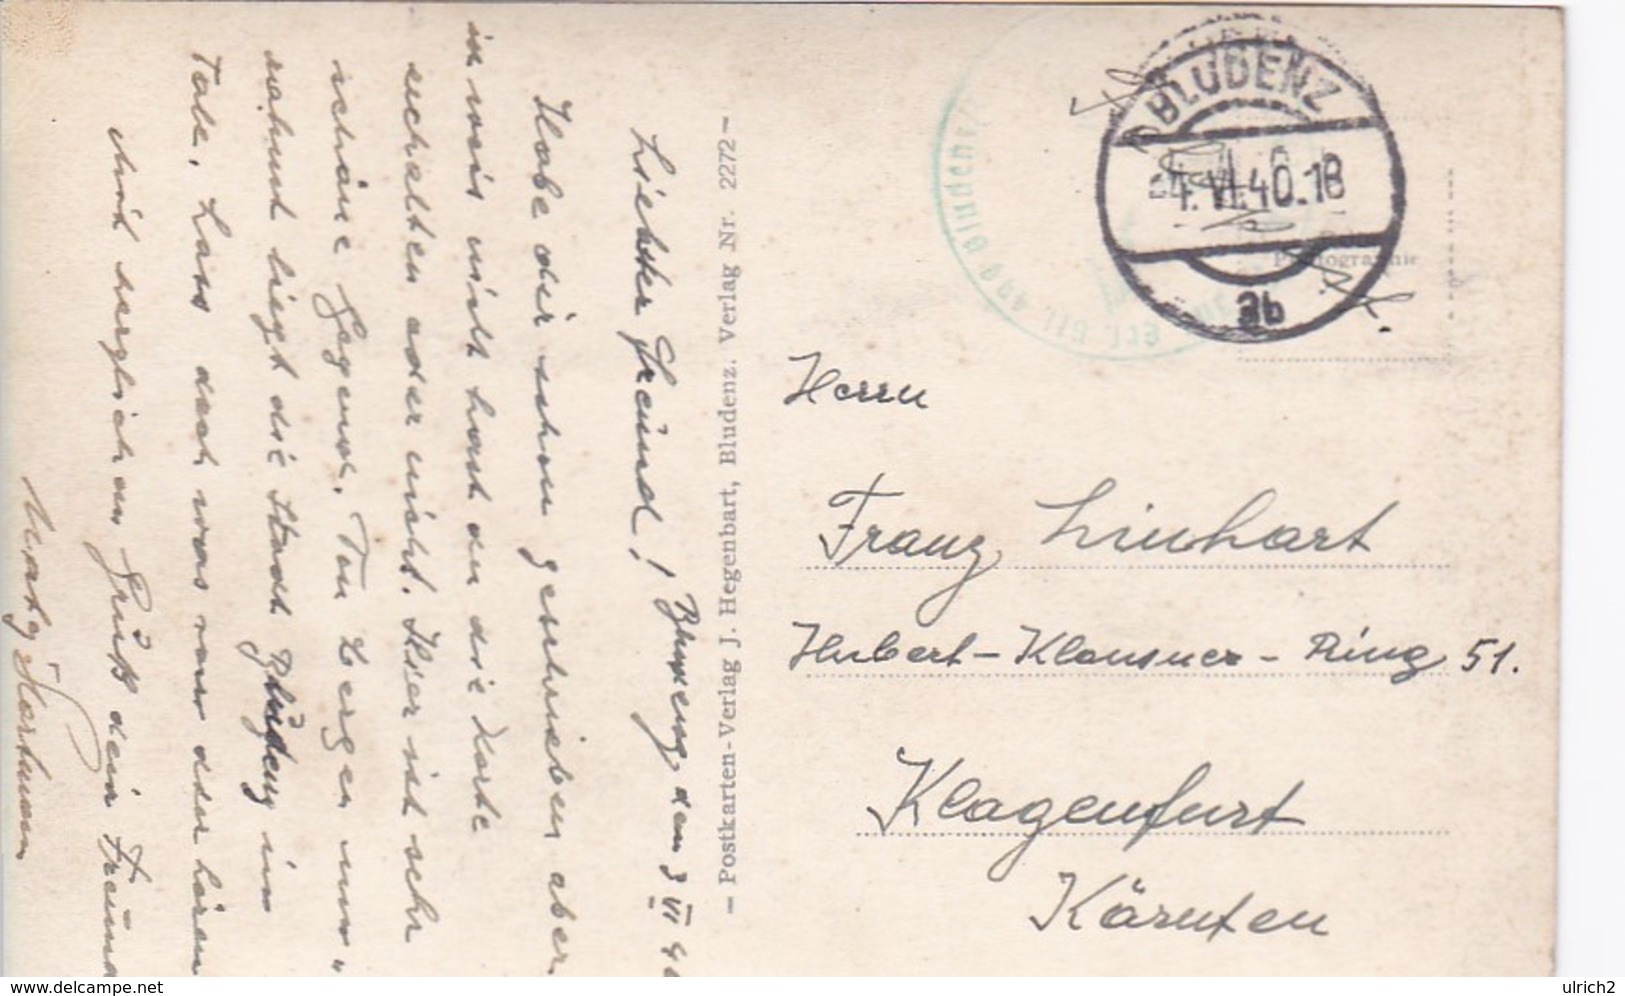 Liebster Freund!
Bludenz, den 3 VI 40
Habe dir schon geschrieben aber
ich weis nicht hast du die Karte
erhalten oder nicht. Hier ist sehr
schöne Gegend. Von Bergen um"
rahmt liegt die Stadt Bludenz im
Tale. Lass doch was von dir hören
Mit herzlichen Grüß dein Freund
- Postkarten-Verlag J. Hegenbart, Bludenz. Verlag Nr. 2272 -
BLUDENZ
4.VI.40.18
Photographie
Herrn
Franz Linhart
Hubert-Klausner-Ring 51.
Klagenfurt
Kärnten
www.delcampe.net
ulrich2